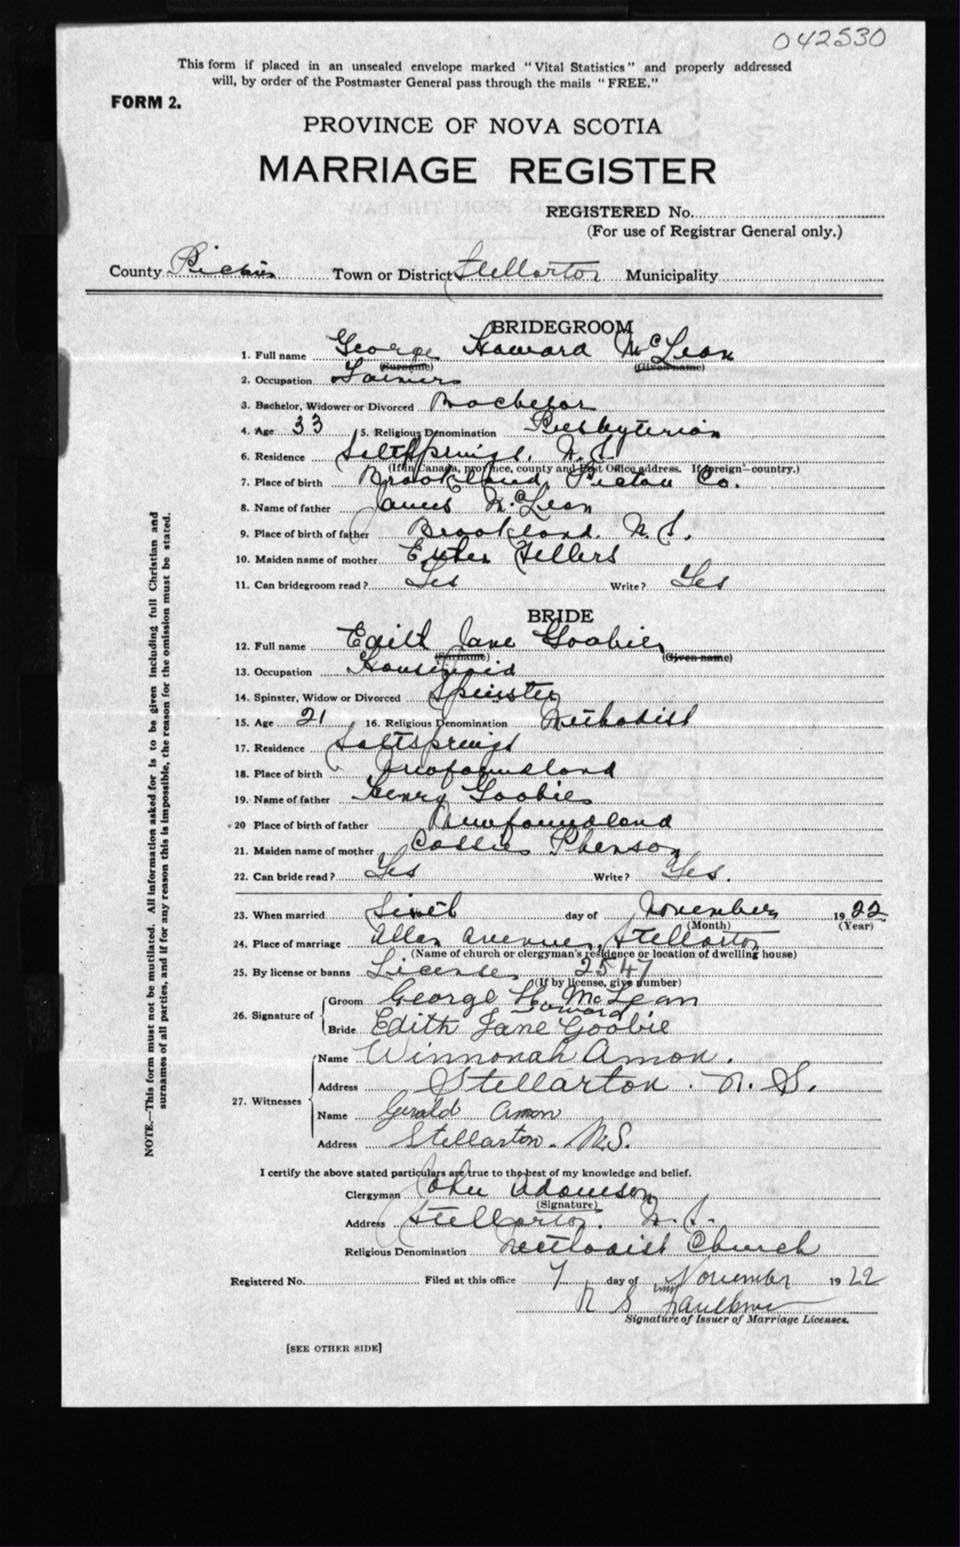 042530
This form if placed in an unsealed envelope marked "Vital Statistics" and properly addressed
will, by order of the Postmaster General pass through the mails "FREE."
FORM 2.
PROVINCE OF NOVA SCOTIA
MARRIAGE REGISTER
REGISTERED No.
(For use of Registrar General only.)
County Pictou Town or District Stellarton Municipality
BRIDEGROOM
1. Full name George Howard McLean
(Surname) (Given name)
2. Occupation Farmer
3. Bachelor, Widower or Divorced Bachelor
4. Age 33 5. Religious Denomination Presbyterian
6. Residence Saltsprings, N.S.
(If in Canada, province, county and Post Office address. If foreign—country.)
7. Place of birth Brookland, Pictou Co.
8. Name of father James McLean
9. Place of birth of father Brookland, N.S.
10. Maiden name of mother Fellers
11. Can bridegroom read? Yes Write? Yes
BRIDE
12. Full name Edith Jane Goobie
(Surname) (Given name)
13. Occupation Housemaid
14. Spinster, Widow or Divorced Spinster
15. Age 21 16. Religious Denomination Methodist
17. Residence Saltsprings
18. Place of birth Newfoundland
19. Name of father Henry Goobie
20 Place of birth of father Newfoundland
21. Maiden name of mother
22. Can bride read? Yes Write? Yes.
23. When married day of November 1922
(Month) (Year)
24. Place of marriage Allan Avenue, Stellarton
(Name of church or clergyman's residence or location of dwelling house)
25. By license or banns License 2547
(If by license, give number)
26. Signature of Groom George H. McLean
Howard
Bride Edith Jane Goobie
27. Witnesses Name Winnonah Amon.
Address Stellarton. N.S.
Name Gerald Amon
Address Stellarton. N.S.
I certify the above stated particulars are true to the best of my knowledge and belief.
Clergyman John Adamson
(Signature)
Address Stellarton. N.S.
Religious Denomination Methodist Church
Registered No. Filed at this office 7 day of November 1922
R S Faulkner
Signature of Issuer of Marriage Licenses.
[SEE OTHER SIDE]
NOTE.—This form must not be mutilated. All information asked for is to be given including full Christian and
surnames of all parties, and if for any reason this is impossible, the reason for the omission must be stated.